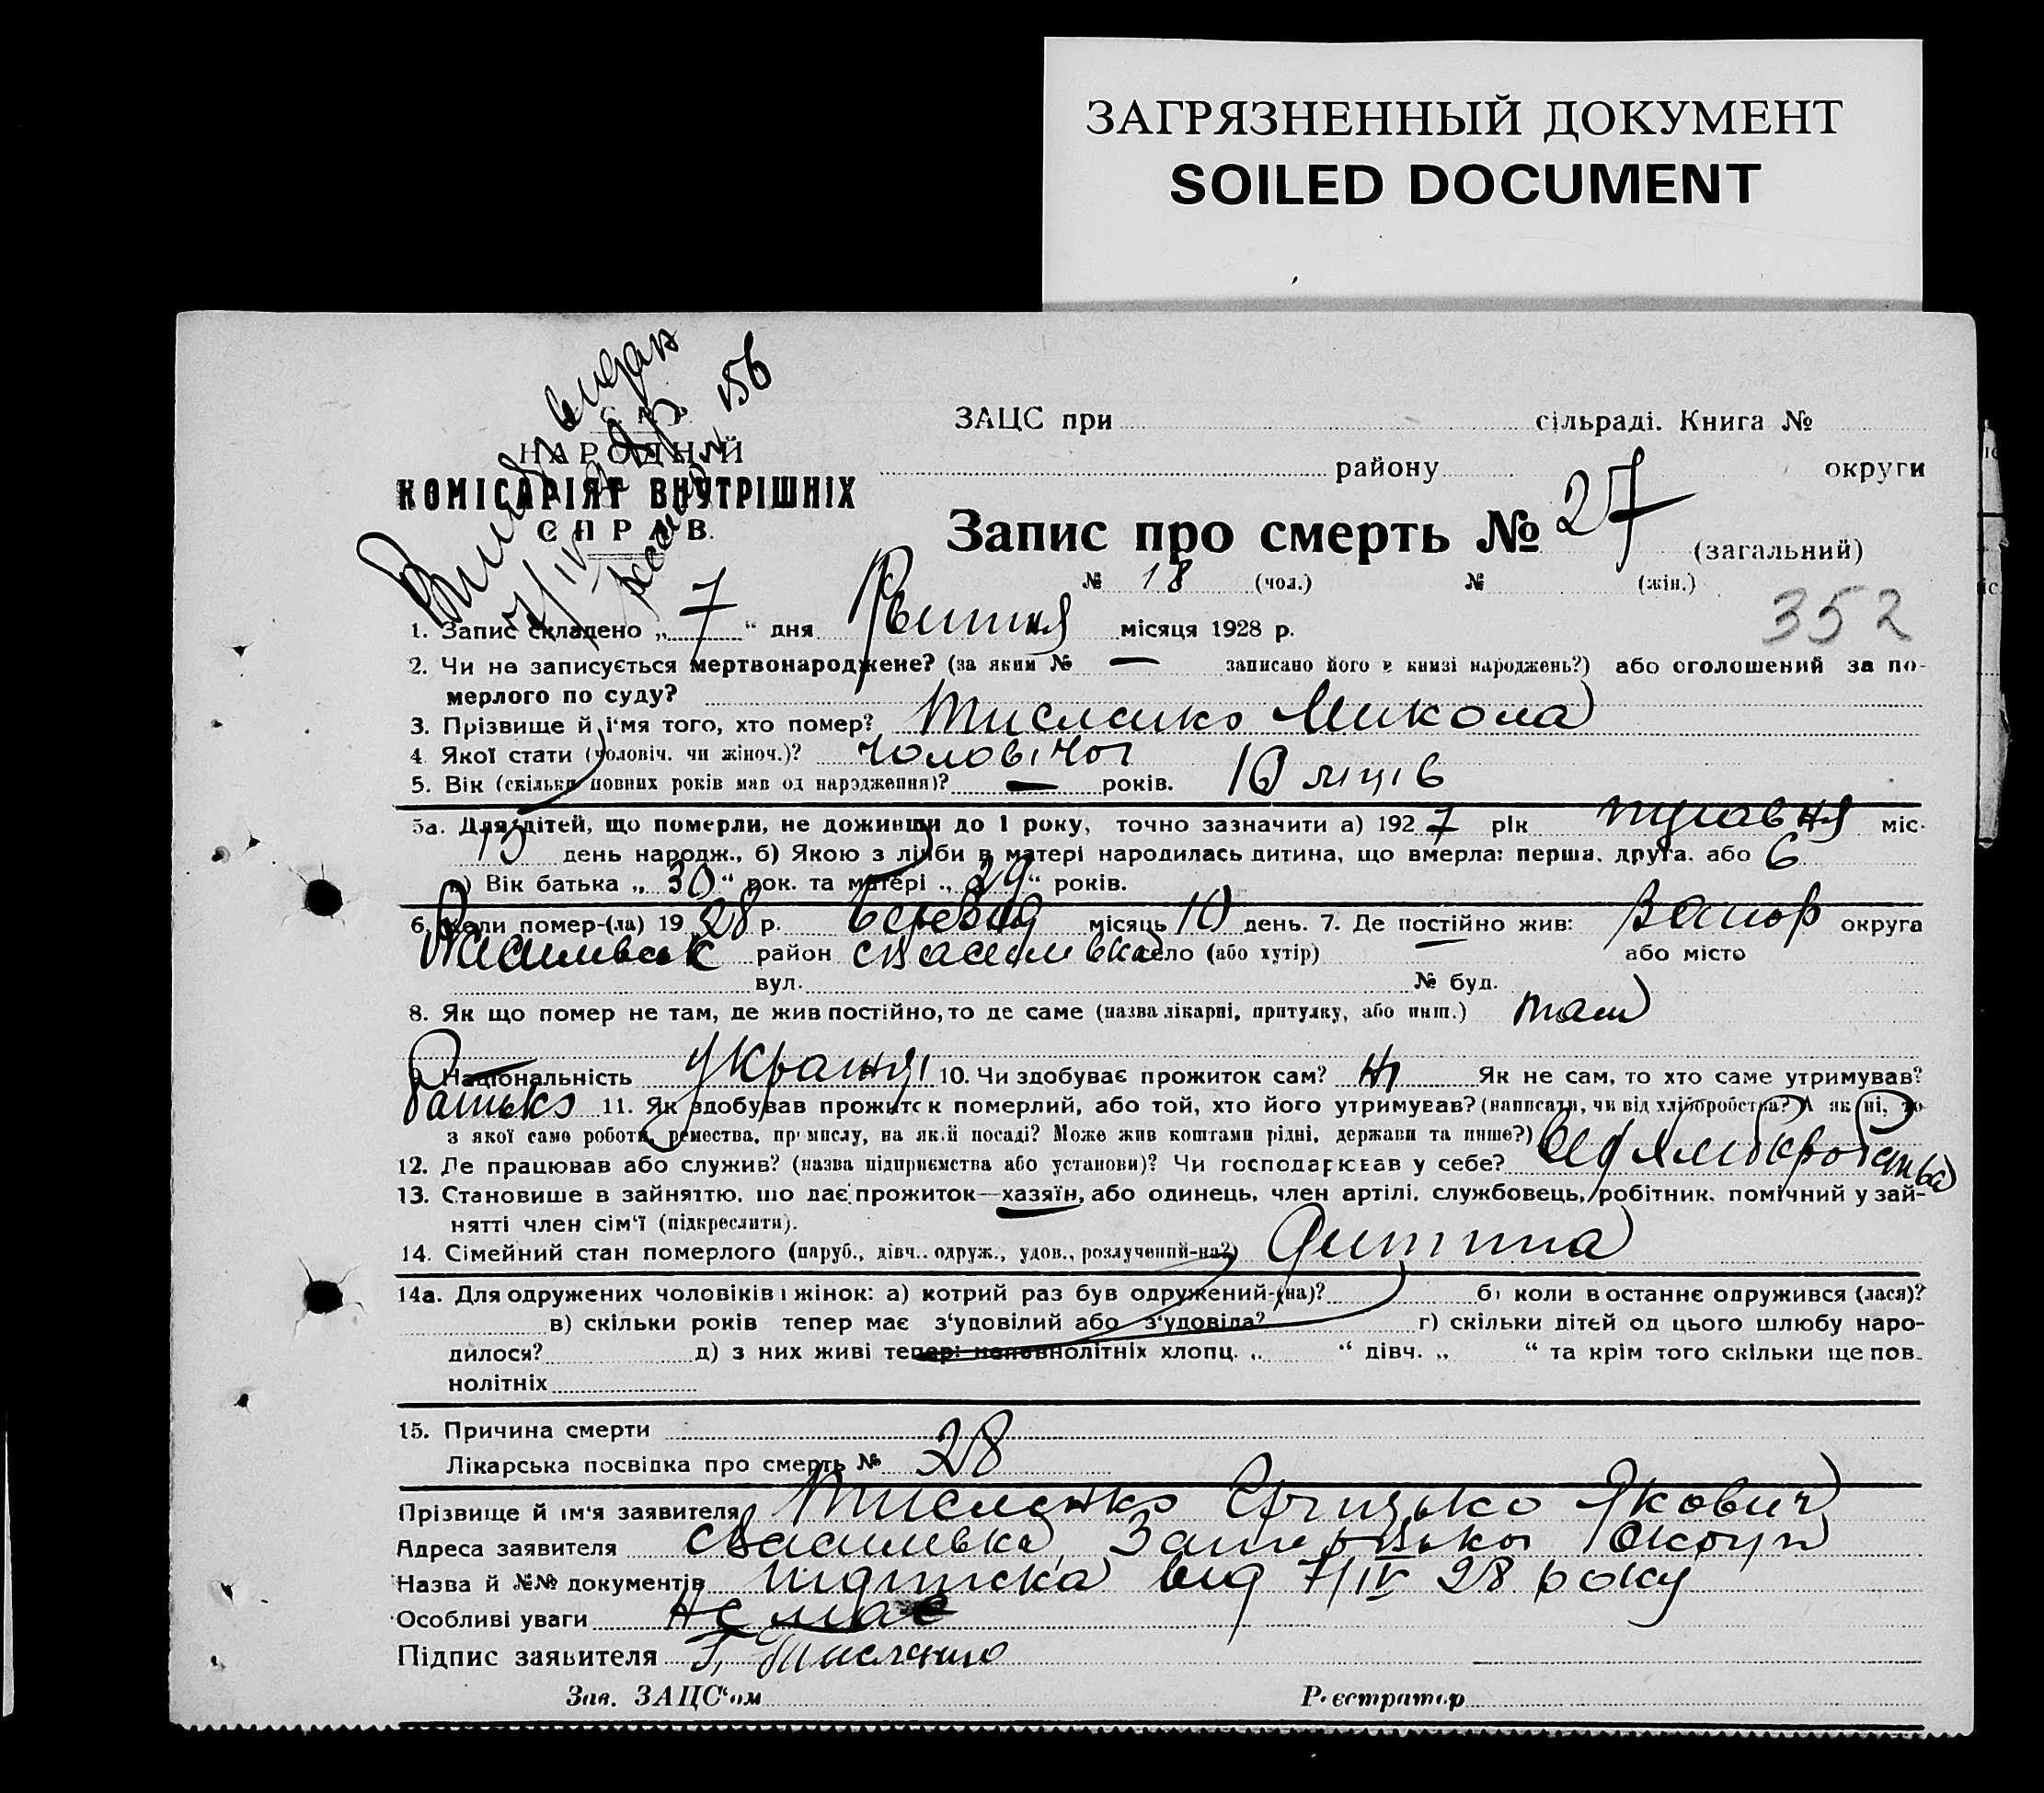 ЗАГРЯЗНЕННЫЙ ДОКУМЕНТ
SOILED DOCUMENT
НАРОДНИЙ
КОМІСАРІЯТ ВНУТРІШНІХ
СПРАВ.
ЗАЦС при сільраді. Книга №
району округи
Запис про смерть № 27 (загальний)
№ 18 (чол.) № (жін.)
352
1. Запис складено „ 7 “ дня Квитня місяця 1928 р.
2. Чи не записується мертвонароджене? (за яким № — записано його в книзі народжень?) або оголошений за по-
мерлого по суду?
3. Прізвище й і'мя того, хто помер? Тисленко Микола
4 Якої стати (чоловіч. чи жіноч.)? чоловічої
5. Вік (скільки повних років мав од народження)? — років. 10 місців
5а. Для дітей, що померли, не доживши до 1 року, точно зазначити а) 192 7 рік травня міс.
13 день народж., б) Якою з лічби в матері народилась дитина, що вмерла: перша, друга, або 6
в) Вік батька „ 30 “ рок. та матері „ 29 “ років.
6. Коли помер-(ла) 19 28 р. місяць 10 день. 7. Де постійно жив: Запор округа
Василівськ район с Василівка село (або хутір) — або місто
вул. № буд.
8. Як що помер не там, де жив постійно, то де саме (назва лікарні, притулку, або инш.) там
9. Національність Украінці 10. Чи здобуває прожиток сам? Ні Як не сам, то хто саме утримував?
батько 11. Як здобував прожиток померлий, або той, хто його утримував? (написати, чи від хліборобства? А як ні, то
з якої саме роботи, ремества, промислу, на якій посаді? Може жив коштами рідні, держави та инше?)
12. Де працював або служив? (назва підприємства або установи)? Чи господарював у себе? від хліборобства
13. Становище в зайняттю, що дає прожиток—хазяїн, або одинець, член артілі, службовець, робітник, помічний у зай-
нятті член сім'ї (підкреслити).
14. Сімейний стан померлого (паруб., дівч.. одруж., удов., розлучений-на?) Дитина
14а. Для одружених чоловіків і жінок: а) котрий раз був одружений-(на)? б) коли востаннє одружився (лася)?
в) скільки років тепер має з'удовілий або з'удовіла? г) скільки дітей од цього шлюбу наро-
дилося? д) з них живі тепер: неповнолітніх хлопц. „ “ дівч. „ “ та крім того скільки ще пов-
нолітніх
15. Причина смерти
Лікарська посвідка про смерть № 28
Прізвище й ім'я заявителя Тисленко Грицько Якович
Адреса заявителя с Василівка, Запорізької Округи
Назва й №№ документів підписка від 7/IV 28 року
Особливі уваги Немає
Підпис заявителя Г. Тисленко
Зав. ЗАЦС'ом Реєстратор